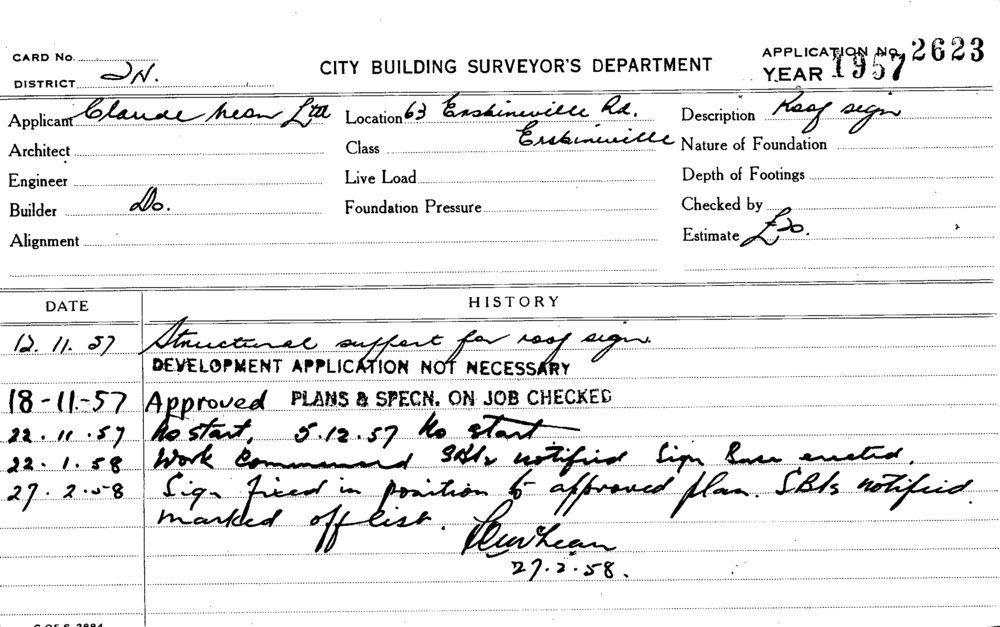 CARD No.
DISTRICT 2N.
CITY BUILDING SURVEYOR'S DEPARTMENT
APPLICATION No. 2623
YEAR 1957
Applicant Claude Neon Ltd Location 63 Erskineville Rd. Description Roof sign
Architect Class Erskineville Nature of Foundation
Engineer Live Load Depth of Footings
Builder Do. Foundation Pressure Checked by
Alignment Estimate £50.
DATE HISTORY
12.11.57 Structural support for roof sign.
DEVELOPMENT APPLICATION NOT NECESSARY
18-11-57 Approved PLANS & SPECN. ON JOB CHECKED
22.11.57 No start, 5.12.57 No start
22.1.58 Work commenced notified Sign Base erected.
27.2.58 Sign fixed in position to approved plan. SBIs notified
marked off list.
27.2.58.